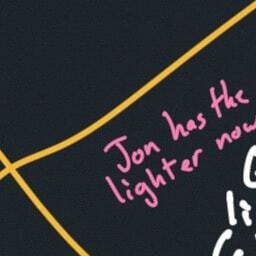 Jon has the
lighter now
li